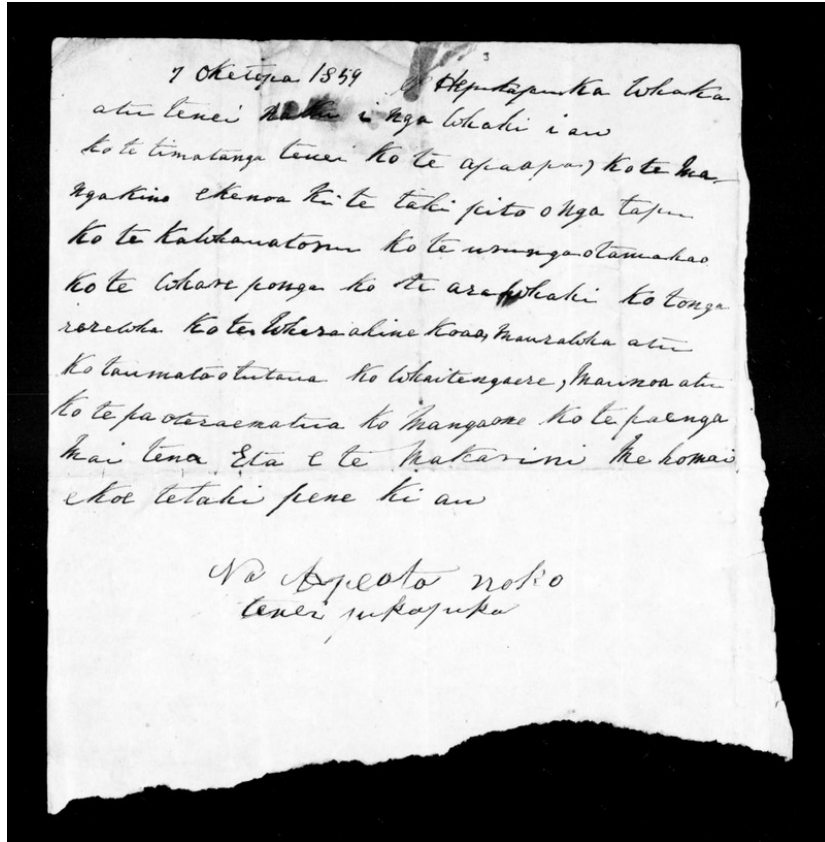 7 Oketopa 1859 He pukapuka Whaka
atu tenei naku i nga Whaki i au
ko te timatanga tenei Ko te apaapa, Ko te Ma-
ngakino ekenoa Ki te taki pito o nga tapu
Ko te Kawhauatonu Ko te urungaotamahao
Ko te Whare ponga Ko te arawhaki Ko tonga
rarewha Ko te Whera Mauraloha atu
Ko taumataotutaua Ko Whaitengaere, Maunoa atu
Ko te pa oteraematua Ko Mangaone Ko te paenga
Mai tena Eta E te Makarini Me homai
e koe tetahi pene Ki au
Na Apeata noko
tenei pukapuka